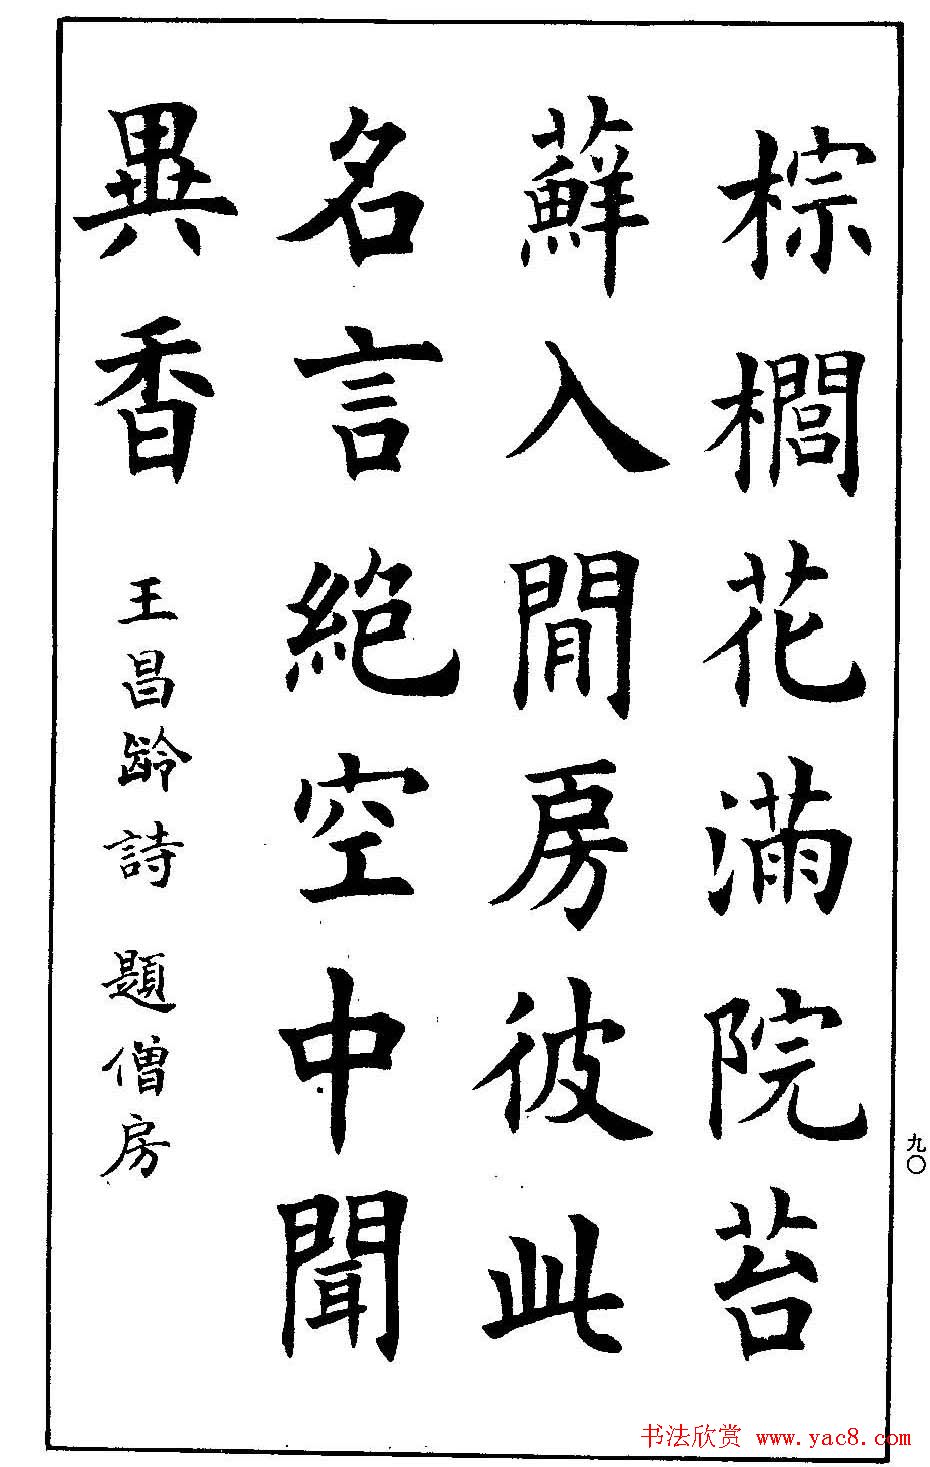 棕櫚花滿院苔
蘚入閒房彼此
名言絶空中聞
異香 王昌齡詩 題僧房
九〇
书法欣赏 www.yac8.com